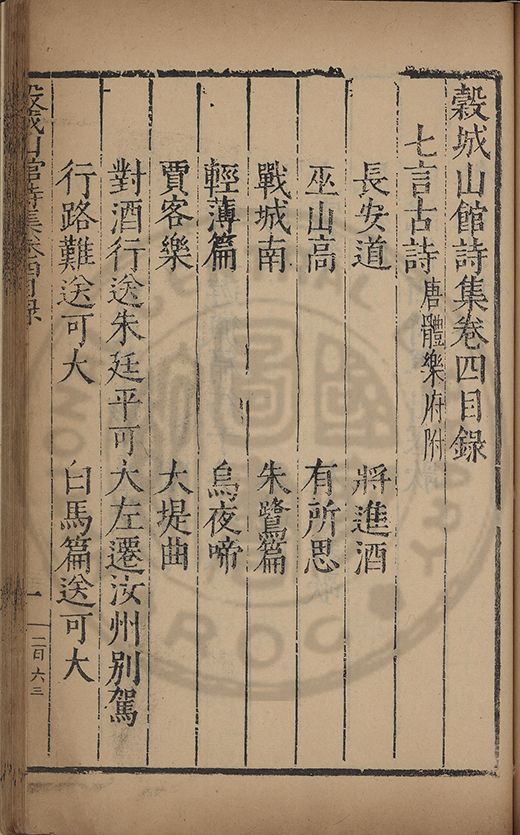 穀城山館詩集卷四目錄
七言古詩 唐體樂府附
長安道 將進酒
巫山高 有所思
戰城南 朱鷺篇
輕薄篇 烏夜啼
賈客樂 大堤曲
對酒行送朱廷平可大左遷汝州別駕
行路難送可大 白馬篇送可大
穀城山館詩集卷四目錄
一
二日六三